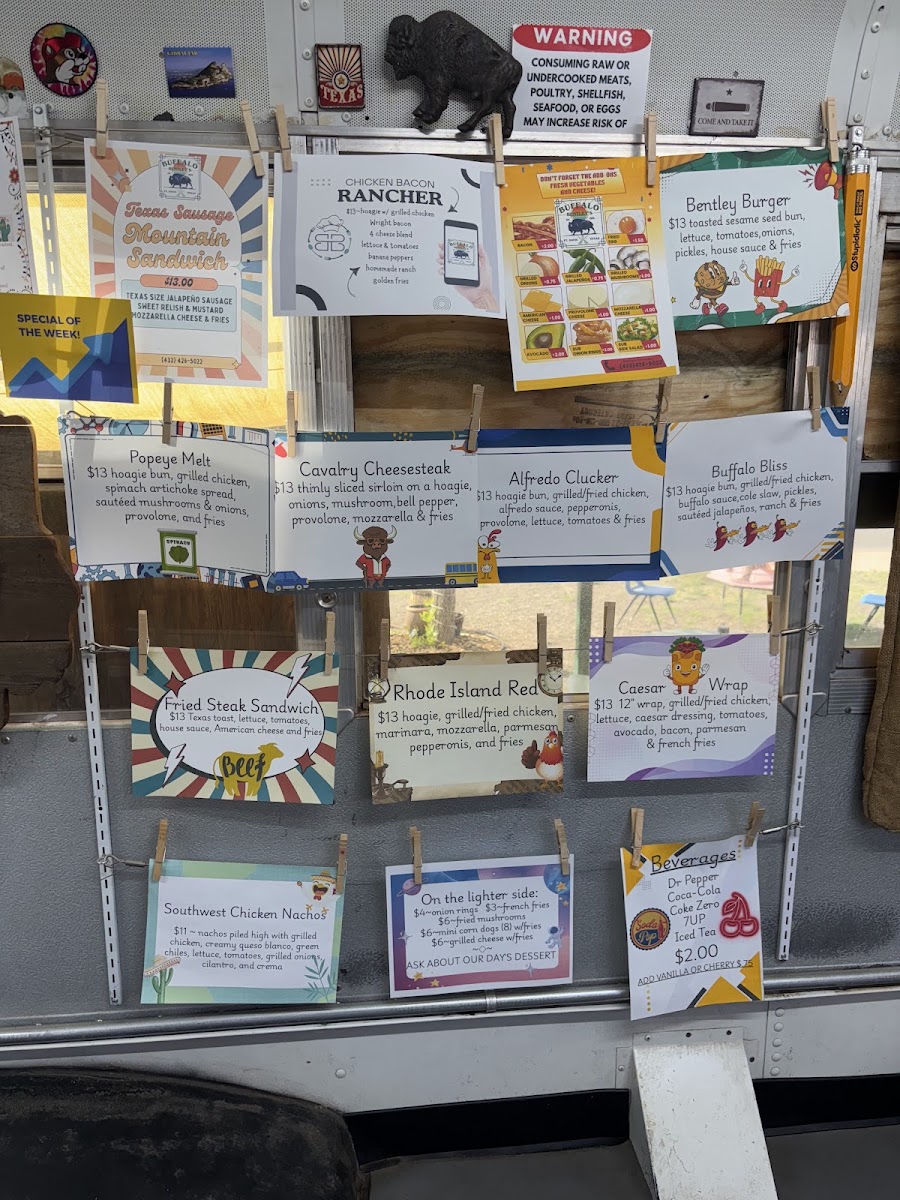 TEXAS
WARNING
CONSUMING RAW OR
UNDERCOOKED MEATS,
POULTRY, SHELLFISH,
SEAFOOD, OR EGGS
MAY INCREASE RISK OF
COME AND TAKE IT
BUFFALO
Texas Sausage
Mountain
Sandwich
$13.00
TEXAS SIZE JALAPEÑO SAUSAGE
SWEET RELISH & MUSTARD
MOZZARELLA CHEESE & FRIES
SPECIAL OF
THE WEEK!
CHICKEN BACON
RANCHER
$13~hoagie w/ grilled chicken
Wright bacon
4 cheese blend
lettuce & tomatoes
banana peppers
homemade ranch
golden fries
DON'T FORGET THE ADD-ONS
FRESH VEGETABLES
AND CHEESE!
BUFFALO
BENTLEY'S
BACON
ONIONS
JALAPENOS
GRILLED
MUSHROOMS
AMERICAN
CHEESE
PROVOLONE
CHEESE
AVOCADO
SUB
ONION RINGS
SUB
SIDE SALAD
Bentley Burger
$13 toasted sesame seed bun,
lettuce, tomatoes,onions,
pickles, house sauce & fries
Stupidiotic
Popeye Melt
$13 hoagie bun, grilled chicken,
spinach artichoke spread,
sautéed mushrooms & onions,
provolone, and fries
SPINACH
Cavalry Cheesesteak
$13 thinly sliced sirloin on a hoagie,
onions, mushroom,bell pepper,
provolone, mozzarella & fries
Alfredo Clucker
$13 hoagie bun, grilled/fried chicken,
alfredo sauce, pepperonis,
provolone, lettuce, tomatoes & fries
Buffalo Bliss
$13 hoagie bun, grilled/fried chicken,
buffalo sauce,cole slaw, pickles,
sautéed jalapeños, ranch & fries
Fried Steak Sandwich
$13 Texas toast, lettuce, tomatoes,
house sauce, American cheese and fries
Beef
Rhode Island Red
$13 hoagie, grilled/fried chicken,
marinara, mozzarella, parmesan
pepperonis, and fries
Caesar Wrap
$13 12" wrap, grilled/fried chicken,
lettuce, caesar dressing, tomatoes,
avocado, bacon, parmesan
& french fries
Southwest Chicken Nachos
$11 ~ nachos piled high with grilled
chicken, creamy queso blanco, green
chiles, lettuce, tomatoes, grilled onions,
cilantro, and crema
On the lighter side:
$4~onion rings $3~french fries
$6~fried mushrooms
$6~mini corn dogs (8) w/fries
$6~grilled cheese w/fries
ASK ABOUT OUR DAY'S DESSERT
Beverages
Dr Pepper
Coca-Cola
Coke Zero
7UP
Iced Tea
$2.00
ADD VANILLA OR CHERRY $.75
Soda
Pop